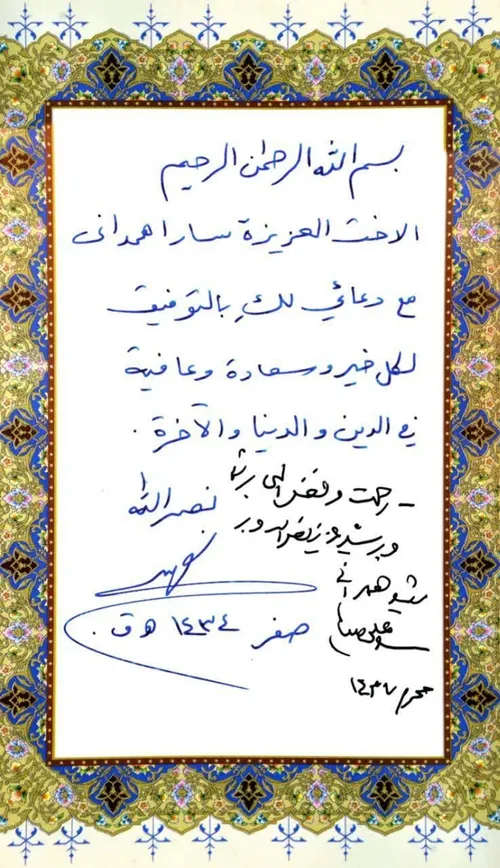 بسم الله الرحمن الرحيم
الاخت العزيزة سارا همدانی
مع دعائي لكِ بالتوفيق
لكل خير وسعادة وعافية
في الدين والدنيا والآخرة .
نصر الله
صفر ١٤٣٤ ه ق .
ـ رحمت و فضل الهی بر شما
همدانی
محرم ١٤٣٧